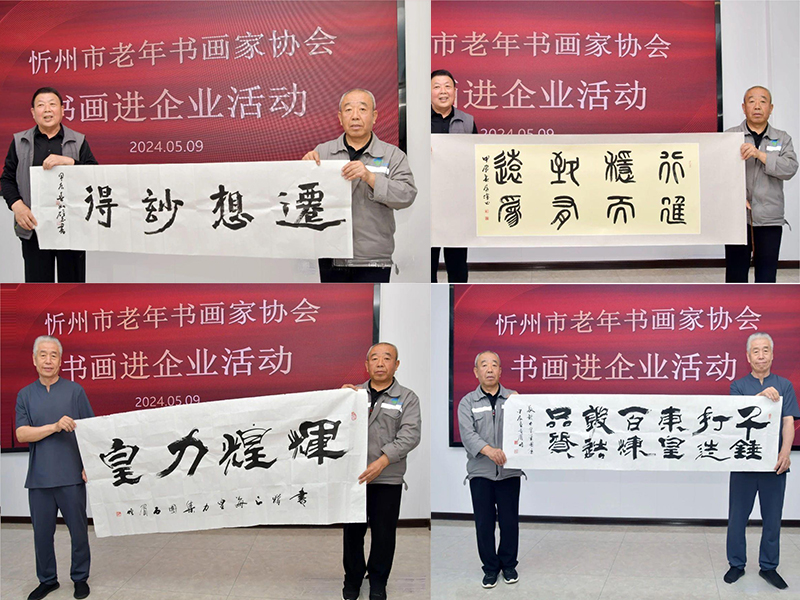 忻州市老年书画家协会
书画进企业活动
2024.05.09
遷想妙得
忻州市老年书画家协会
书画进企业活动
2024.05.09
行穩致遠
進而有為
忻州市老年书画家协会
书画进企业活动
2024.05.09
輝煌力皇
忻州市老年书画家协会
书画进企业活动
千錘
打造
東皇
百煉
鍛鑄
品質